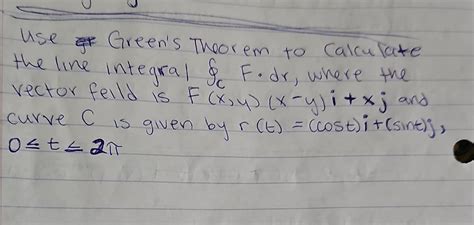 Use Green's Theorem to Calculate
the line integral ∮c F·dr, where the
vector feild is F(x,y) (x-y)i + xj and
curve C is given by r(t) = (cost)i+(sint)j,
0≤t≤2π